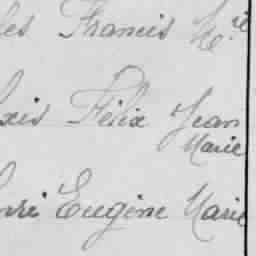 les Francis M.ie
exis Félix Jean
Marie
enri Eugène Marie